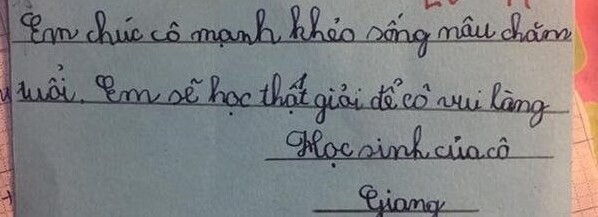 Em chúc cô mạnh khẻo sống mâu chăm
tuổi. Em sẽ học thật giải để cô vui làng
Học sinh của cô
Giang